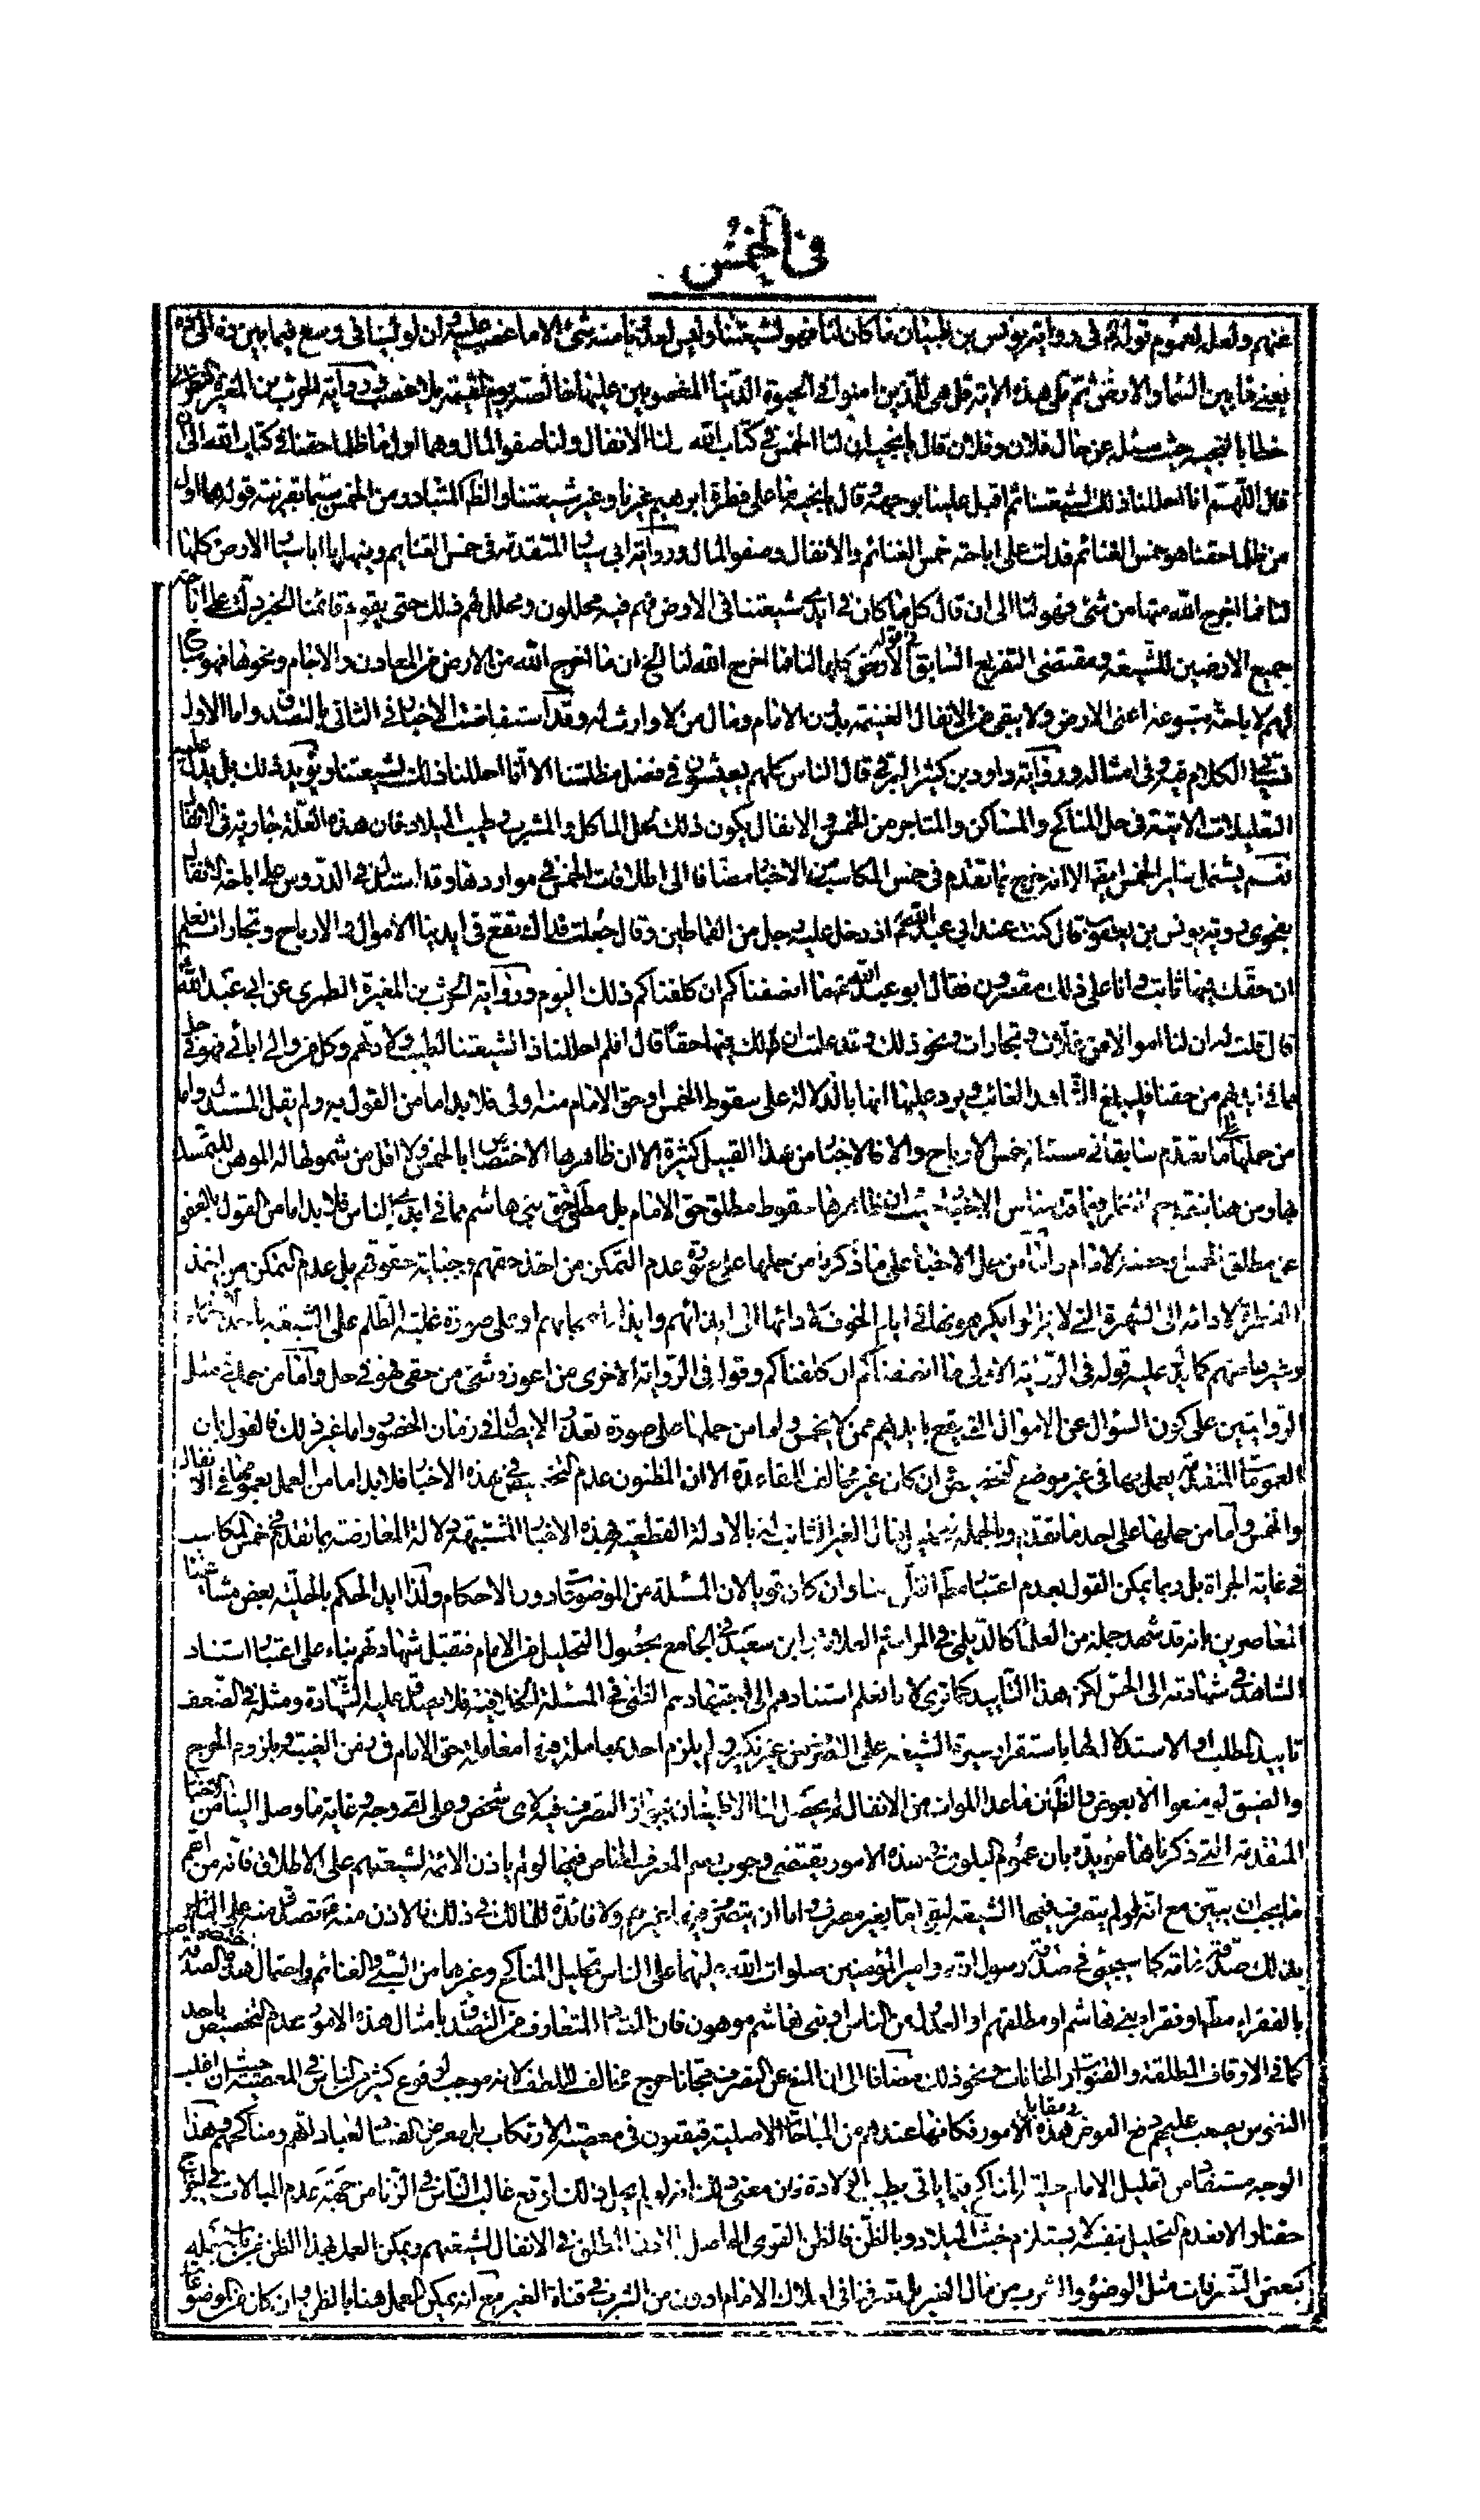 في الخمس
عنهم ولعله لعموم قوله في رواية يونس بن ظبيان فما كان لنا فهو لشيعتنا وليس لعدونا منه شئ الا ما غصب عليه وان ولينا لفي اوسع فيما بين ذه الى ذه
يعني ما بين السماء والارض ثم تلى هذه الاية قل هي للذين امنوا في الحيوة الدنيا المغصوبين عليها خالصة يوم القيمة بلا غصب وفي رواية الحرث بن المغيرة النضري
خطابا لنجية حيث سئله عن حال فلان وفلان قال يا نجية ان لنا الخمس في كتاب الله ولنا الانفال ولنا صفو المال وهما اول من ظلما حقنا في كتاب الله الى ان
قال اللهم انا احللنا ذلك لشيعتنا ثم اقبل علينا بوجهه قال يا نجية ما على فطرة ابرهيم غيرنا وغير شيعتنا والظ المتبادر من الخمس سيما بقرينة قوله هما اول
من ظلما حقنا هو خمس الغنائم فدلت على اباحة خمس الغنائم والانفال وصفو المال ورواية ابي سيار المتقدمة في خمس الغنايم وفيها يا ابا سيار الارض كلها
لنا فما اخرج الله منها من شئ فهو لنا الى ان قال كل ما كان في ايدي شيعتنا في الارض فهم فيه محللون ومحلل لهم ذلك حتى يقوم قائمنا الخبر دلت على اباحة
جميع الارضين للشيعة ومقتضى التفريع السابق في قوله الارض كلها لنا فما اخرج الله لنا الخ ان ما اخرج الله من الارض من المعادن والاجام ونحوها فهو مباح
لهم لاباحة متبوعه اعنى الارض ولا يبقى من الانفال الا الغنيمة بدون الامام ومال من لا وارث له وقد استفاضت الاخبار في الثاني بالتصدق واما الاول
فسيجئ الكلام فيه وفي امثاله ورواية داود بن كثير الرقي قال الناس كلهم يعيشون في فضل مظلمتنا الا انا احللنا ذلك لشيعتنا ويؤيد ذلك بل يدل عليه
التعليلات الاتية في حل المناكح والمساكن والمتاجر من الخمس والانفال يكون ذلك لحل الماكل والمشرب وطيب الميلاد فان هذه العلة جارية في الانفال
نعم يشمل بناء الخمس ايضا الا انه خرج بما تقدم في خمس المكاسب من الاخبار مضافا الى اطلاقات الخمس في مواردها وقد استدل في الدروس على اباحة الانفال
بفحوى رواية يونس بن يعقوب قال كنت عند ابي عبد الله اذ دخل عليه رجل من القماطين وقال جعلت فداك تقع في ايدينا الاموال والارباح وتجارات نعلم
ان حقك فيها ثابت وانا عن ذلك مقصرون فقال ابو عبد الله ما انصفناكم ان كلفناكم ذلك اليوم ورواية الحرث بن المغيرة النضري عن ابي عبد الله
قال قلت له ان لنا اموالا من غلات وتجارات ونحو ذلك وقد علمت ان لك فيها حقا قال فلم احللنا اذا لشيعتنا الا لتطيب ولادتهم وكل من والى ابائي فهو في حل
مما في ايديهم من حقنا فليبلغ الشاهد الغائب ويرد عليها انها بالدلالة على سقوط الخمس وحق الامام منه اولى فلا بد اما من القول به ولم يقل المستدل واما
من حملها على ما تقدم سابقا في مسئلة خمس الارباح والا فالاخبار من هذا القبيل كثيرة الا ان ظاهرها الاختصاص بالخمس ولا اقل من شمولها له الموهن للتمسك
بها ومن هنا يتجه النظر فيما قدمناه من الاخبار حيث ان ظاهرها سقوط مطلق حق الامام بل مطلق حق بني هاشم مما في ايدي الناس فلا بد اما من القول بالعفو
عن مطلق الخمس وحصة الامام واما من حمل الاخبار على ما ذكرنا من حملها على صورة عدم التمكن من اخذ حقهم وجباية حقوقهم بل عدم التمكن من اخذ
لادائه الى الشهرة التي لا يزالوا يكرهونها في ايام الخوف وادائها الى ايذائهم وايذاء اصحابهم او على صورة غلبة الظلم على الشيعة
وغيرها منهم كما يدل عليه قوله في الرواية الاولى ما انصفناكم ان كلفناكم وقوله في الرواية الاخرى من اعوزه شئ من حقي فهو في حل واما من حمل مثل
الروايتين على كون السؤال عن الاموال التي يقع بايديهم ممن لا يخمس واما من حملها على صورة تعذر الايصال في زمان الحضور واما غير ذلك فالقول بان
العمومات المتقدمة يعمل بها في غير موضع التخصيص وان كان غير مخالف للقاعدة الا ان المظنون عدم التخصيص في هذه الاخبار فلا بد اما من العمل بعمومها في الانفال
والخمس واما من حملها على احد ما تقدم وبالجملة الغير الثابت له بالادلة القطعية بهذه الاخبار المشتبهة الدلالة المعارضة بما تقدم في خمس المكاسب
في غاية الجراة بل ربما يمكن القول بعدم اعتبار مطلق الظن هنا وان كان قويا لان المسئلة من الموضوعات دون الاحكام ولذا ايد الحكم بالحلية بعض مشايخنا
المعاصرين بانه قد شهد جملة من العلماء كالديلمي في المراسم العلائية وابن سعيد في الجامع بحصول التحليل من الامام فتقبل شهادتهم بناء على اعتبار استناد
الشاهد في شهادته الى الحس لكن هذا التاييد كما ترى لانا نعلم استنادهم الى اجتهادهم الظني في المسئلة الخلافية فلا يصدق عليه الشهادة ومثله في الضعف
تاييد المطلب او الاستدلال لها باستقرار سيرة الشيعة على التصرف من غير نكير ولم يلزم احد بمعاملة حق الامام في زمن الغيبة وبلزوم الحرج
والضيق لو منعوا الا بعوض فالظن ما عدا الموات من الانفال لم يحصل لنا الاطمينان بجواز التصرف فيه لاى شخص وعلى اى وجه وغاية ما وصل الينا من الاخبار
المتقدمة التي ذكرناها مؤيدة بان عموم البلوى في هذه الامور يقتضى وجوب رسم المصرف الخاص فيها لو لم ياذن الائمة لشيعتهم على الاطلاق فانه من اهم
ما يجب ان يبين مع انه لو لم يتصرف فيها الشيعة لبقى اما بغير مصرف واما ان يتصرف فيه غيرهم ولا فائدة للمالك في ذلك فالاذن منه تصدق منه على الناس
بذلك صدقة خاصة كما سيجئ في صدقة رسول الله وامير المؤمنين صلوات الله عليهما على الناس تحليل المناكح وغيرها من السبي والغنائم واحتمال هذه الصدقة
بالفقراء مطلقا او فقراء بني هاشم او مطلقهم او العدول من الناس او بني هاشم موهون فان المتعارف من التصدق بامثال هذه الامور عدم التخصيص باحد
كما في الاوقاف المطلقة والقنوات والخانات ونحو ذلك مضافا الى ان المنع عن التصرف مجانا حرج مخالف للطف لانه موجب لوقوع كثير من الناس في المعصية حيث ان اغلب
النفوس يصعب عليهم دفع العوض في مقابل هذه الامور فكانها عندهم من المباحات الاصلية فيقعون في معصية الارتكاب بل معرض الفساد لعباداتهم ومناكحهم وهذا
الوجه مستفاد من تعليل الامام حلية المناكح فيما ياتي بطيب الولادة فان معنى ذلك انه لو لم يحل ذلك لوقع غالب الناس في الزنا من جهة عدم المبالات في الخروج عن
حقنا والا فعدم التحليل بنفسه لا يستلزم خبث الميلاد وبالظن فالظن القوى الحاصل بالاذن المطلق في الانفال لشيعتهم ويمكن العمل بهذا الظن
كبعض التصرفات مثل الوضوء والشرب من مال الغير بل تصرفنا في املاك الامام ادون من الشرب في قناة الغير مع انه يمكن العمل هنا بالظن وان كان في الموضوعات